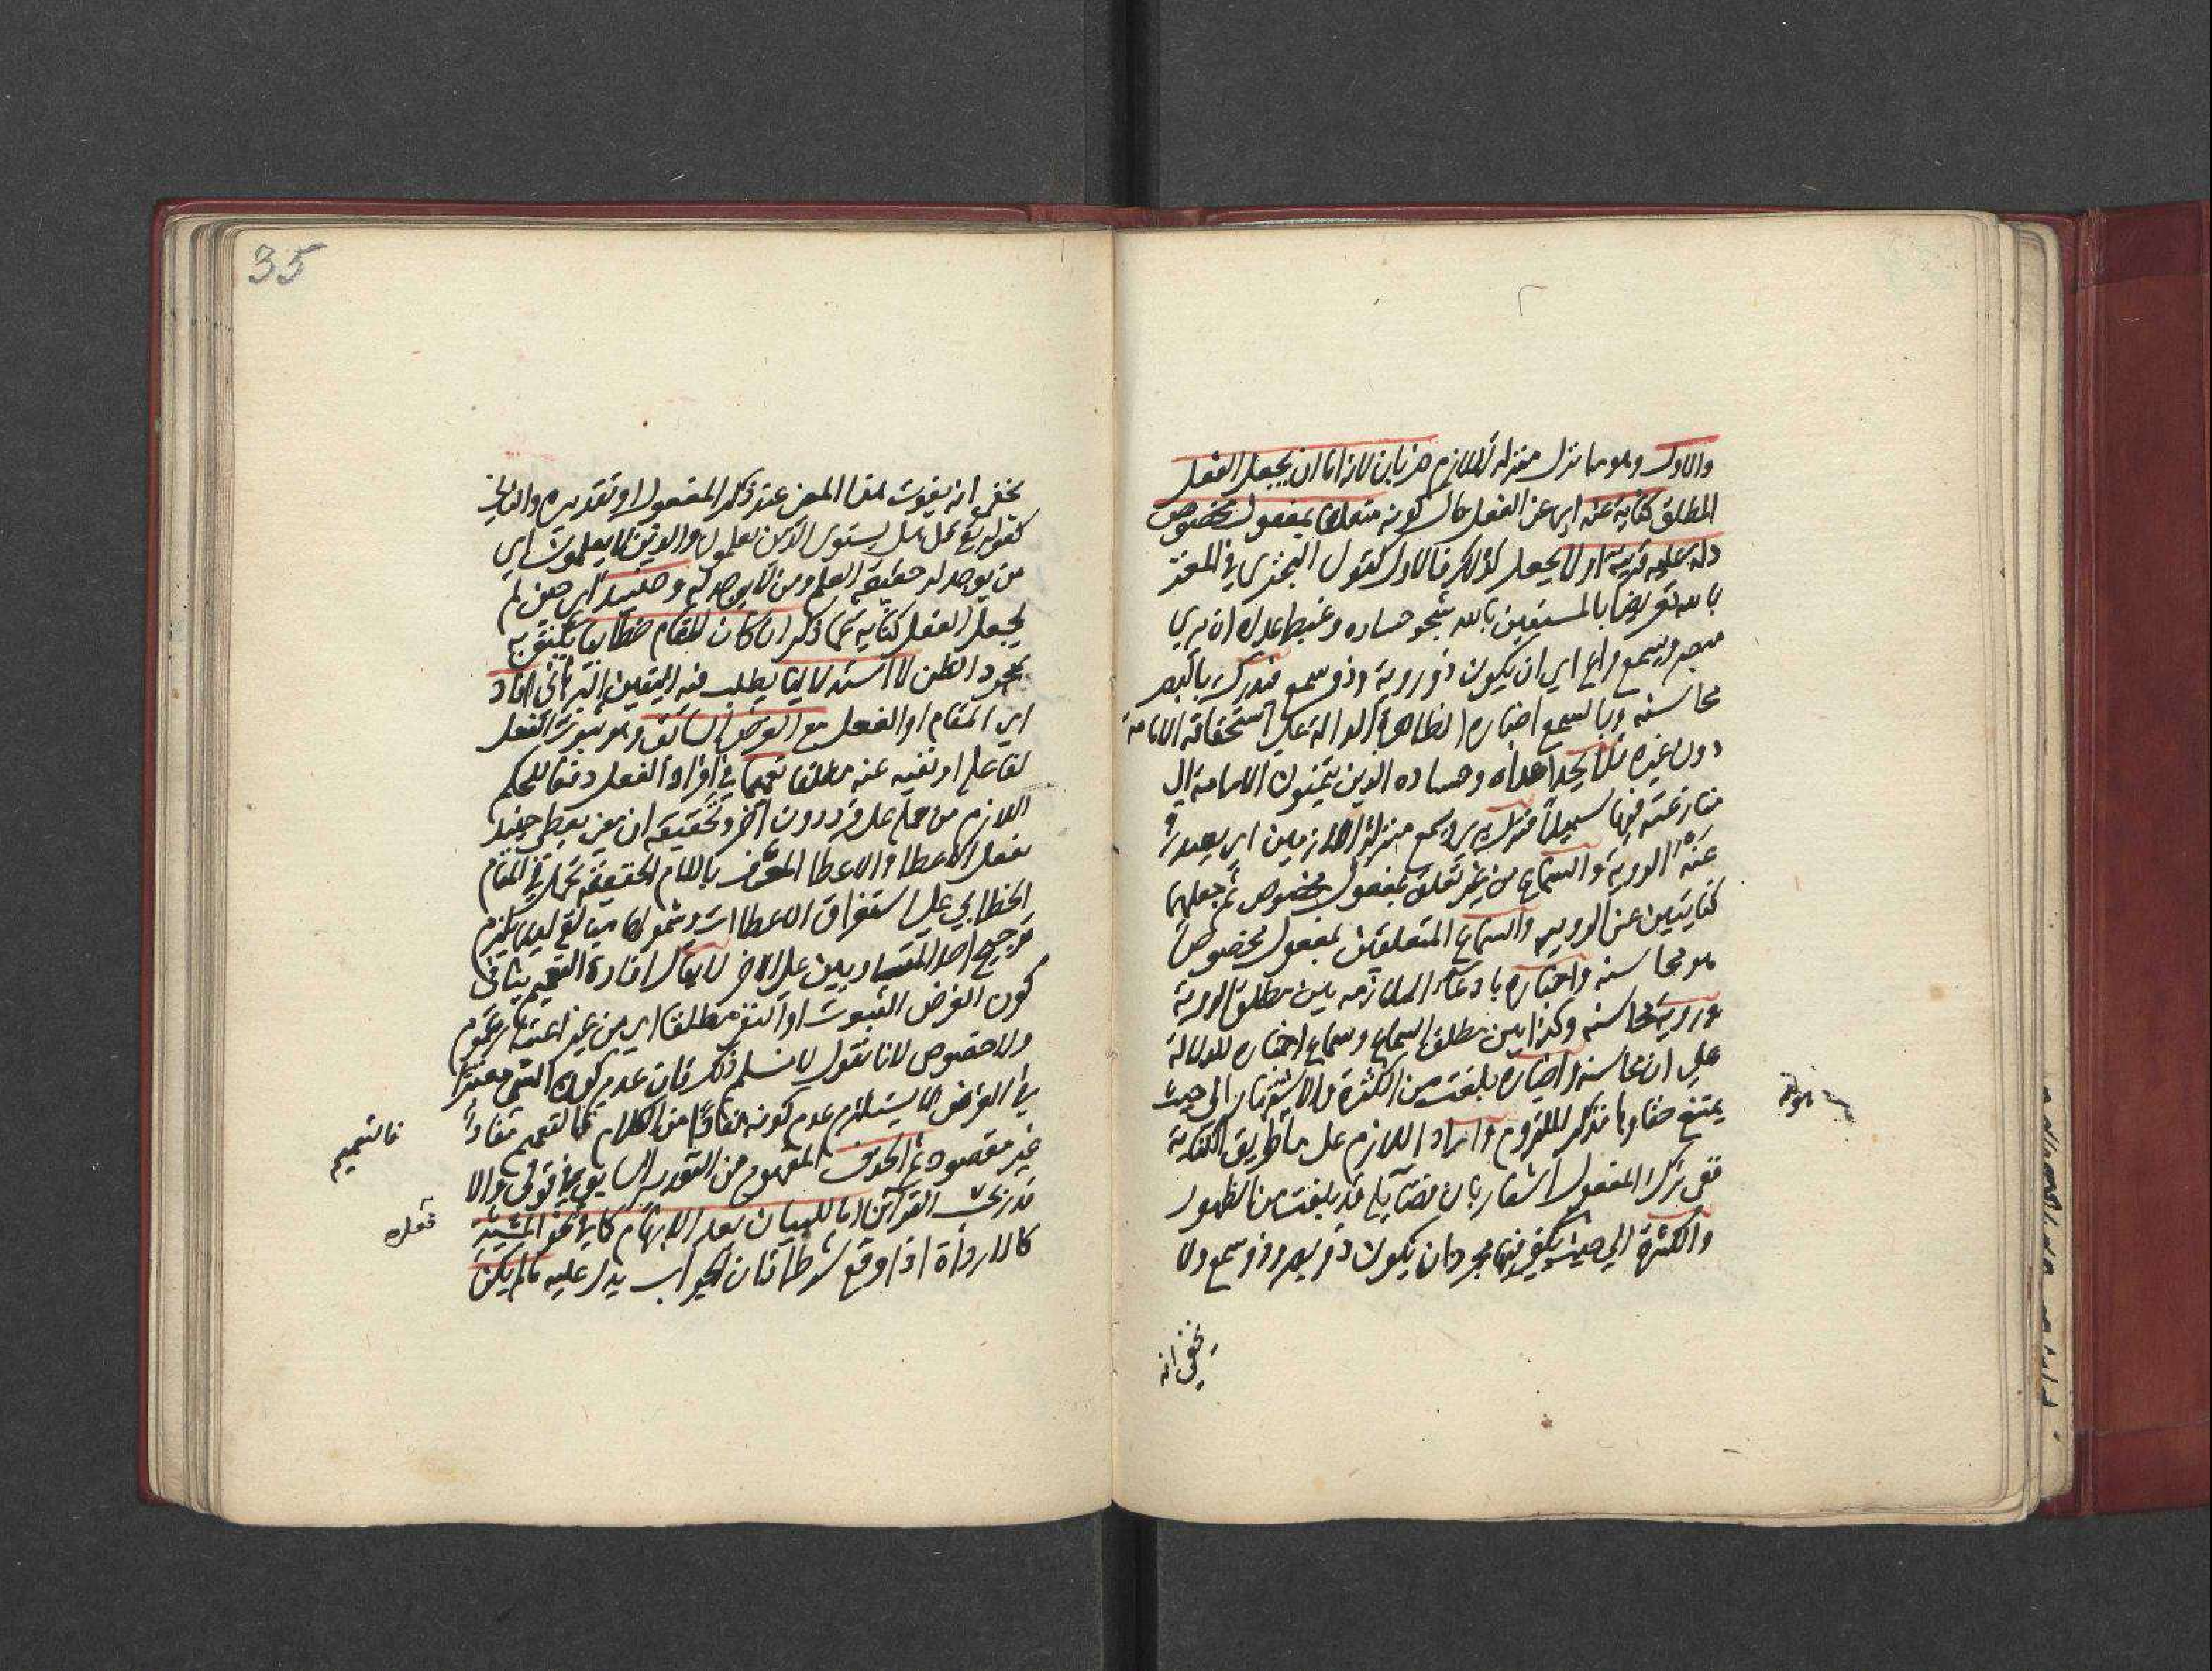 والاول وهو ما نزل منزلة اللازم ضربان لانه اما ان يجعل الفعل
المطلق كناية عنه اي عن الفعل حال كونه متعلقا بمفعول مخصوص
دلت عليه قرينة او لا يجعل كذلك فالاول كقول البحتري في المعتز
بالله تعريضا بالمستعين بالله شجو حساده وغيظ عداه ان يري
مبصر ويسمع واع اي ان يكون ذو روية وذو سمع فيدرك بالبصر
محاسنه وبالسمع اخباره الظاهرة الدالة علي استحقاقه الامامة
دون غيره فلا يجد اعداه وحساده الذين يتمنون الامامة الي
منازعته فيها سبيلا فنزل يري ويسمع منزلة اللازمين اي يصدر
عنه الروية والسماع من غير تعلق بمفعول مخصوص ثم جعلهما
كنايتين عن الروية والسماع المتعلقين بمفعول مخصوص
هو محاسنه واخباره بادعاء الملازمة بين مطلق الروية
وروية محاسنه وكذا بين مطلق السماع وسماع اخباره للدلالة
علي ان محاسنه واخباره بلغت من الكثرة والاشتهار الي حيث
يمتنع خفاوها فذكر الملزوم واراد اللازم علي ما طريق الكناية
ففي ترك المفعول اشعار بان فضايله قد بلغت من الظهور
والكثرة الي حيث يكفي فيها مجرد ان يكون ذو بصر وذو سمع ولا
يخفي انه
35
يخفي انه يفوت هذا المعني عند ذكر المفعول او تقديره والثاني
كقوله تع قل هل يستوي الذين يعلمون والذين لا يعلمون اي
من يوجد له حقيقة العلم ومن لا يوجد له وحينئذ اي حين لم
يجعل الفعل كناية عما ذكر ان كان المقام خطابيا يكتفي به
بمجرد الظن لا استدلاليا يطلب فيه اليقين البرهاني افاد
اي المقام او الفعل مع الغرض السابق وهو ثبوت الفعل
لفاعله او نفيه عنه مطلقا تعميما في افراد الفعل دفعا للتحكم
اللازم من حمله علي فرد دون اخر وتحقيقه ان معني يعطي حينئذ
يفعل الاعطا والاعطا المعرف بلام الحقيقة يحمل في المقام
الخطابي علي استغراق الاعطاات وشمولها مبالغة ليلا يلزم
ترجيح احد المتساويين علي الاخر لا يقال افادة التعميم ينافي
كون الغرض الثبوت او النفي مطلقا اي من غير اعتبار عموم
ولا خصوص لانا نقول لا نسلم ذلك فان عدم كون الشي معتبرا
في الغرض لا يستلزم عدم كونه مفادا من الكلام فالتعميم مفاد
غير مقصود ثم الحذف المفهوم من التقدير السابق في قولي والا
قدر بحسب القراين اما للبيان بعد الابهام كما في فعل المشيئة
كالارادة اذا وقع شرطا فان الجواب يدل عليه ما لم يكن
فالتعميم
فعل